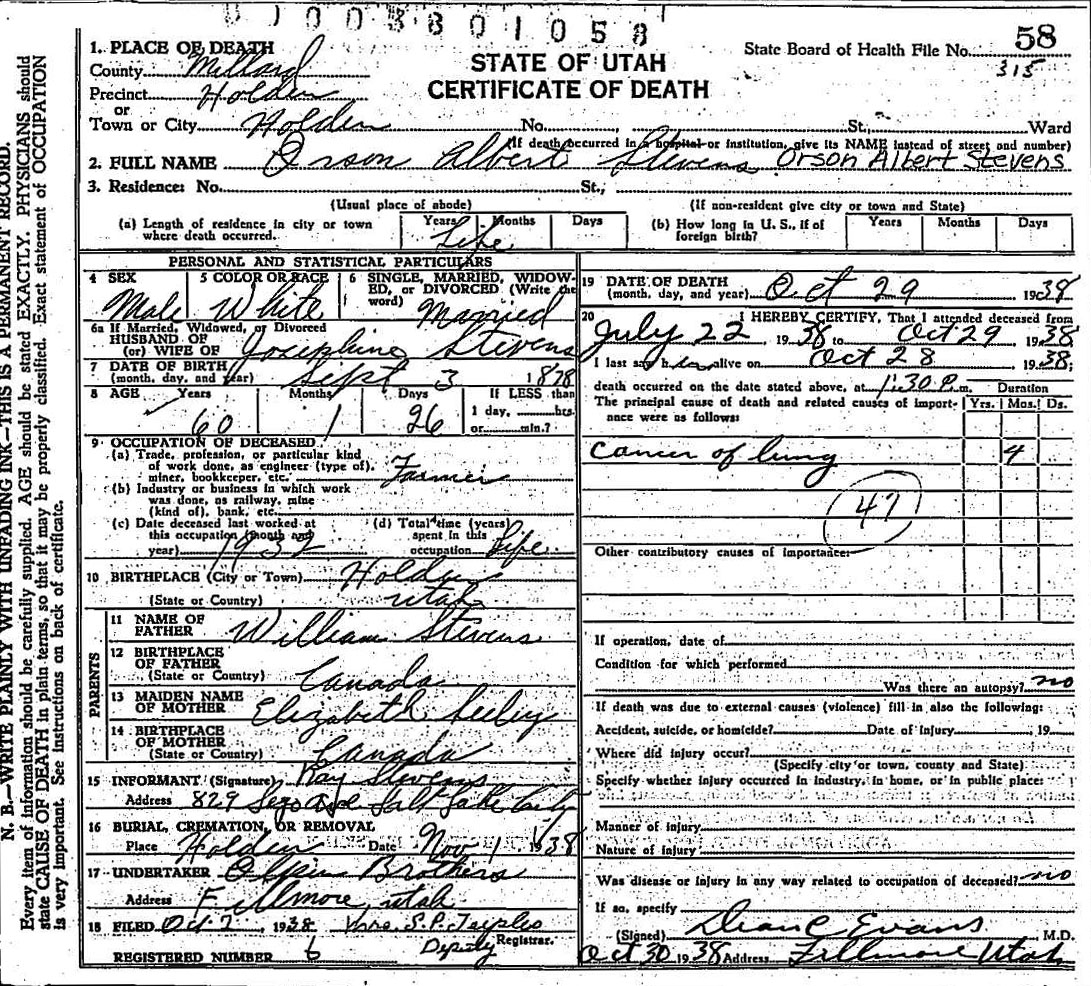 U1003301058
58
State Board of Health File No.
315
STATE OF UTAH
CERTIFICATE OF DEATH
1. PLACE OF DEATH
County Millard
Precinct Holden
or
Town or City Holden No. St., Ward
(If death occurred in a hospital or institution, give its NAME instead of street and number)
2. FULL NAME Orson Albert Stevens Orson Albert Stevens
3. Residence: No. St.,
(Usual place of abode) (If non-resident give city or town and State)
(a) Length of residence in city or town where death occurred. Years Months Days
Life
(b) How long in U. S., if of foreign birth? Years Months Days
PERSONAL AND STATISTICAL PARTICULARS
4 SEX 5 COLOR OR RACE 6 SINGLE, MARRIED, WIDOWED, OR DIVORCED (Write the word)
Male White Married
6a If Married, Widowed, or Divorced
HUSBAND OF
(or) WIFE OF Josephine Stevens
7 DATE OF BIRTH
(month, day, and year) Sept 3 1878
8 AGE Years Months Days If LESS than
1 day, hrs.
or min.?
60 1 26
9 OCCUPATION OF DECEASED
(a) Trade, profession, or particular kind
of work done, as engineer (type of),
miner, bookkeeper, etc. Farmer
(b) Industry or business in which work
was done, as railway, mine
(kind of), bank, etc.
(c) Date deceased last worked at
this occupation (month and
year) 1932
(d) Total time (years)
spent in this
occupation Life
10 BIRTHPLACE (City or Town) Holden
(State or Country) Utah
PARENTS
11 NAME OF
FATHER William Stevens
12 BIRTHPLACE
OF FATHER
(State or Country) Canada
13 MAIDEN NAME
OF MOTHER Elizabeth Seeley
14 BIRTHPLACE
OF MOTHER
(State or Country) Canada
15 INFORMANT (Signature) Ray Stevens
Address 829 Sego Ave Salt Lake City
16 BURIAL, CREMATION, OR REMOVAL
Place Holden Date Nov 1 1938
17 UNDERTAKER Olpin Brothers
Address Fillmore, Utah
18 FILED Oct 1938 Mrs. S.P. Registrar.
Deputy
REGISTERED NUMBER 6
19 DATE OF DEATH
(month, day, and year) Oct 29 1938
20 I HEREBY CERTIFY, That I attended deceased from
July 22, 1938 to Oct 29, 1938
I last saw him alive on Oct 28 1938;
death occurred on the date stated above, at 1:30 P.m.
The principal cause of death and related causes of importance were as follows:
Duration
Yrs. Mos. Ds.
Cancer of lung 4
47
Other contributory causes of importance:
If operation, date of
Condition for which performed
Was there an autopsy? no
If death was due to external causes (violence) fill in also the following:
Accident, suicide, or homicide? Date of Injury , 19
Where did injury occur?
(Specify city or town, county and State)
Specify whether injury occurred in industry, in home, or in public place:
Manner of injury
Nature of injury
Was disease or injury in any way related to occupation of deceased? no
If so, specify
(Signed) Dean C Evans M.D.
Oct 30 1938 Address Fillmore Utah
N. B.—WRITE PLAINLY WITH UNFADING INK—THIS IS A PERMANENT RECORD.
Every item of information should be carefully supplied. AGE should be stated EXACTLY. PHYSICIANS should
state CAUSE OF DEATH in plain terms, so that it may be properly classified. Exact statement of OCCUPATION
is very important. See instructions on back of certificate.